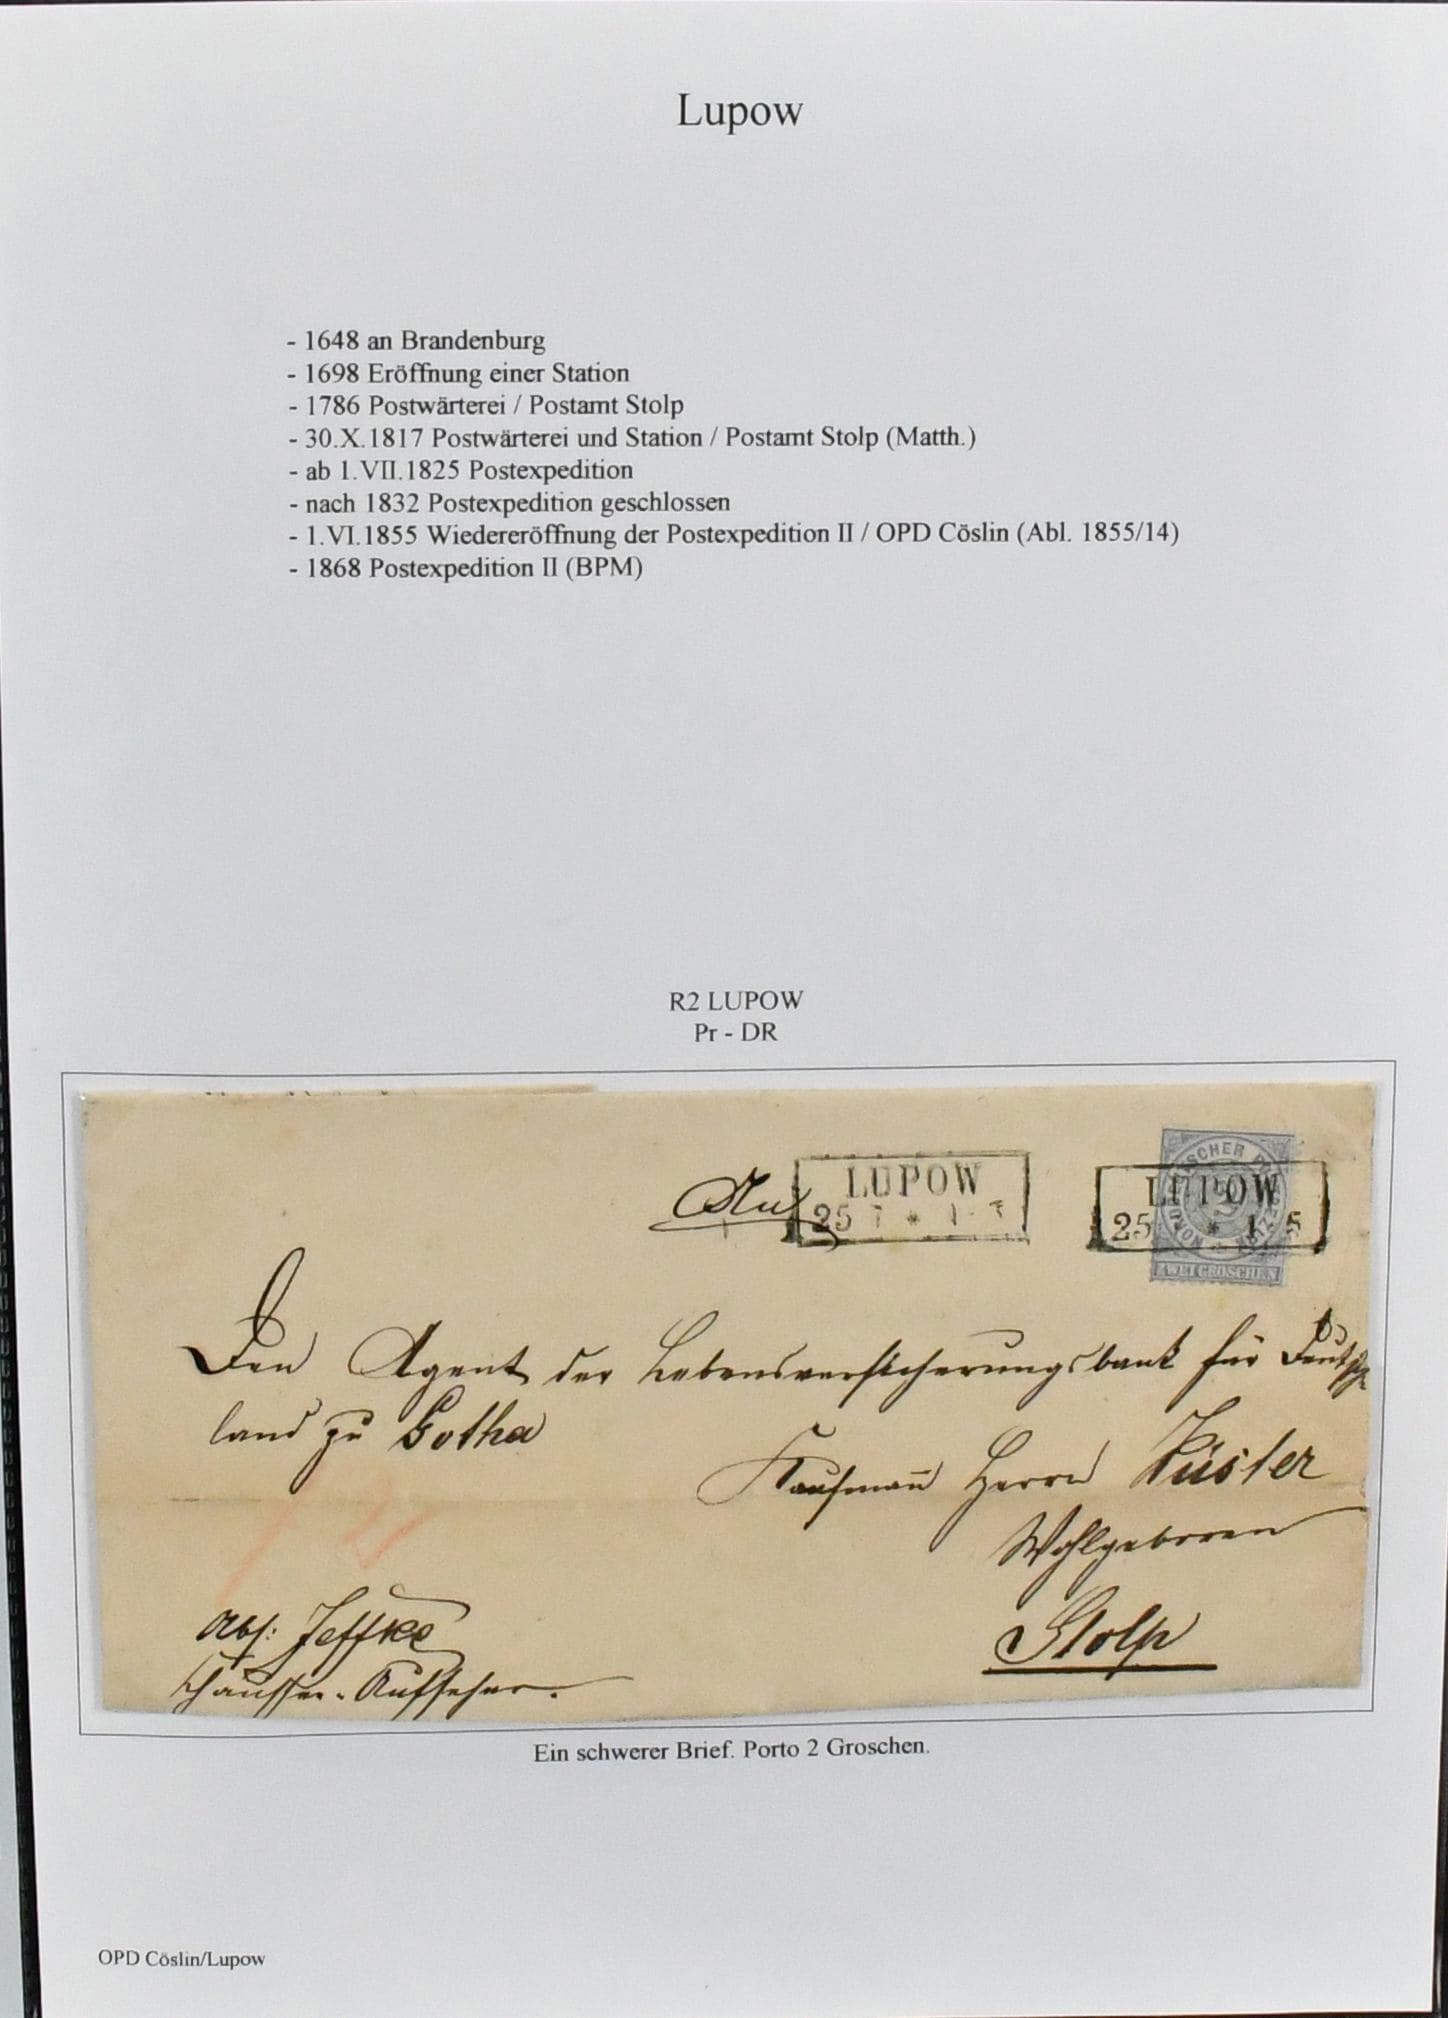 Lupow
- 1648 an Brandenburg
- 1698 Eröffnung einer Station
- 1786 Postwärterei / Postamt Stolp
- 30.X.1817 Postwärterei und Station / Postamt Stolp (Matth.)
- ab 1.VII.1825 Postexpedition
- nach 1832 Postexpedition geschlossen
- 1.VI.1855 Wiedereröffnung der Postexpedition II / OPD Cöslin (Abl. 1855/14)
- 1868 Postexpedition II (BPM)
R2 LUPOW
Pr - DR
An
LUPOW
25 7 *
LUPOW
25 * 5
ZWEI GROSCHEN
Den Agent der Lebensversicherungsbank für Deutsch
land zu Gotha
Kaufmann Herrn Küster
Wohlgeboren
Stolp
Abs: Jeffke
Chaussee-Aufseher.
Ein schwerer Brief. Porto 2 Groschen.
OPD Cöslin/Lupow